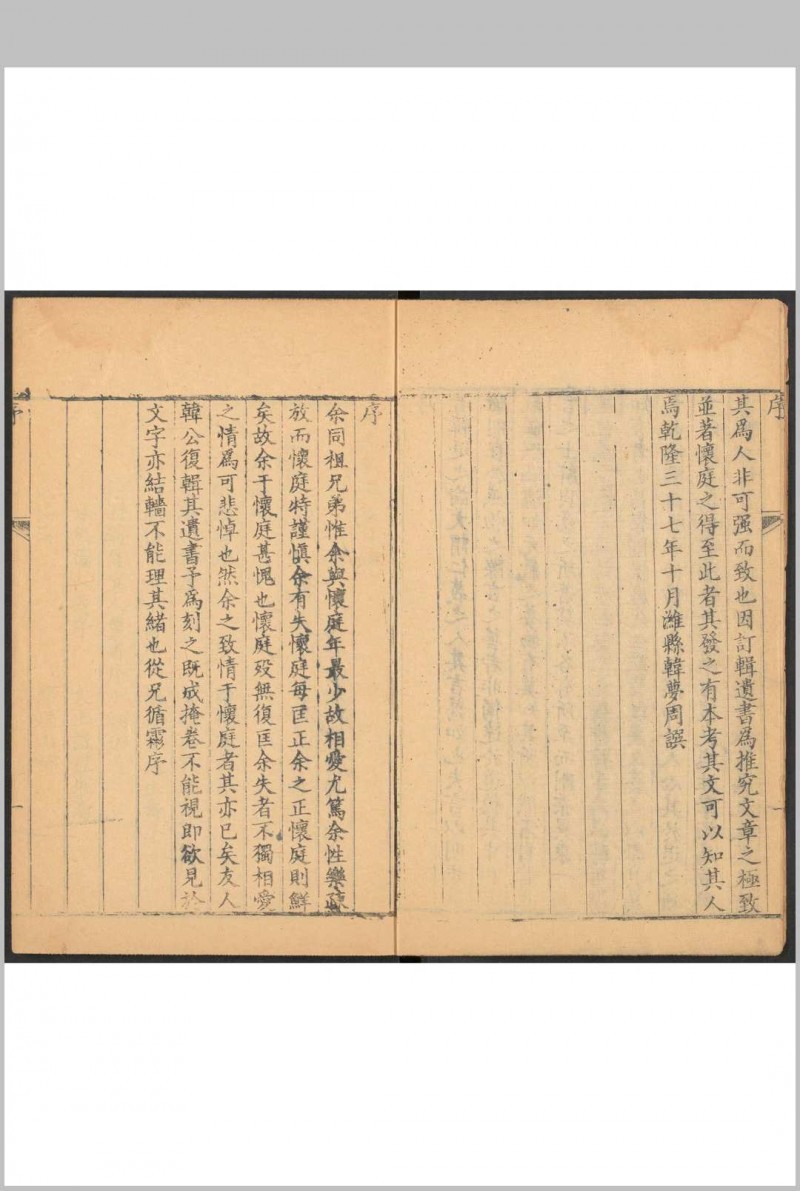 序
其爲人非可强而致也因訂輯遺書爲推究文章之極致
並著懷庭之得至此者其發之有本考其文可以知其人
焉乾隆三十七年十月濰縣韓夢周譔
一
序
余同祖兄弟惟余與懷庭年最少故相愛尤篤余性樂疎
放而懷庭特謹愼余有失懷庭每匡正余之正懷庭則鮮
矣故余于懷庭甚愧也懷庭歿無復匡余失者不獨相愛
之情爲可悲悼也然余之致情于懷庭者其亦已矣友人
韓公復輯其遺書予爲刻之既成掩卷不能視即欲見於
文字亦結轖不能理其緒也從兄循霦序
序
一